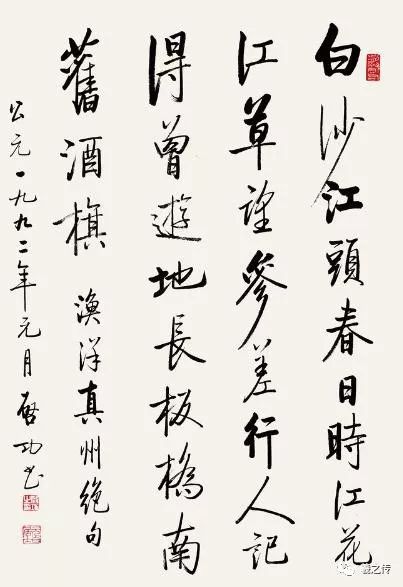 白沙江頭春日時江花
江草望參差行人記
得曾遊地長板橋南
舊酒旗 漁洋真州絕句
公元一九九二年元月 啟功书
羲之传